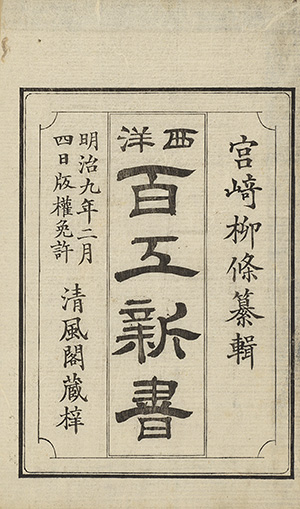 宮﨑柳條纂輯
西洋
百工新書
明治九年二月
四日版權免許
清風閣藏梓